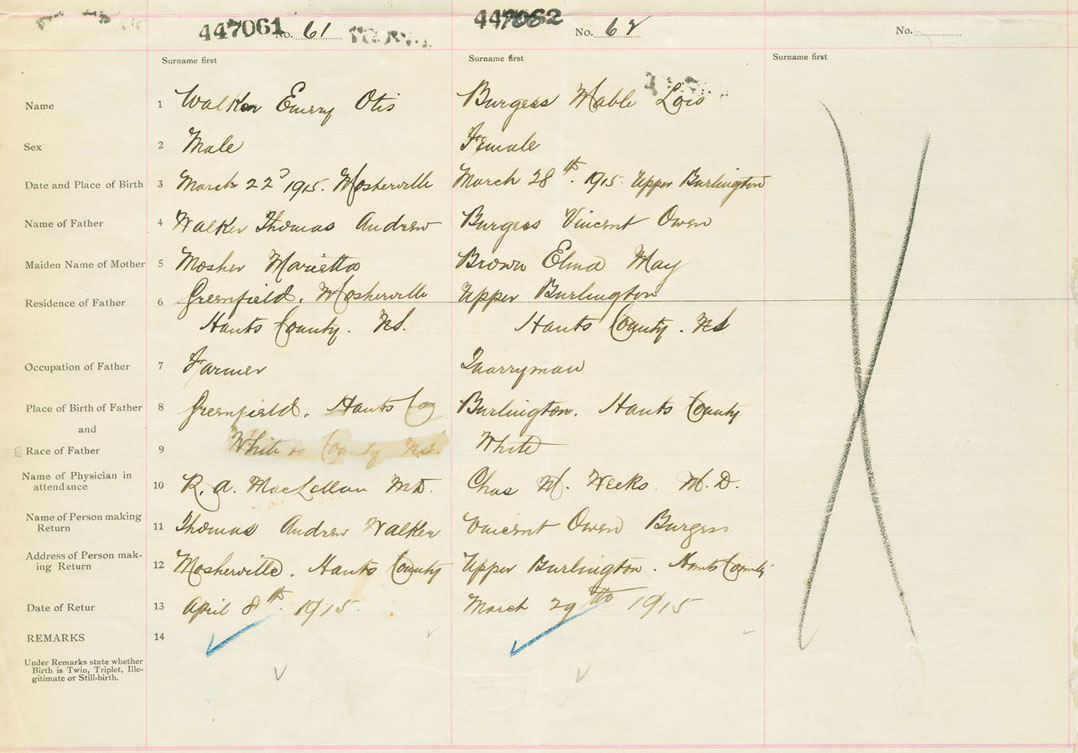 447061 No. 61
447062 No. 62
No.
Surname first
Surname first
Surname first
Name 1 Walker Emery Otis
Burgess Mable Lois
Sex 2 Male
Female
Date and Place of Birth 3 March 22ᵈ 1915. Mosherville
March 28th. 1915. Upper Burlington
Name of Father 4 Walker Thomas Andrew
Burgess Vincent Owen
Maiden Name of Mother 5 Mosher Marietta
Brown Elma May
Residence of Father 6 Greenfield. Mosherville
Upper Burlington
Hants County. NS.
Hants County. NS
Occupation of Father 7 Farmer
Quarryman
Place of Birth of Father 8 Greenfield. Hants Co
Burlington. Hants County
and
Race of Father 9 White County NS.
White
Name of Physician in
attendance 10 R. A. MacLellan MD.
Chas M. Weeks. M.D.
Name of Person making
Return 11 Thomas Andrew Walker
Vincent Owen Burgess
Address of Person mak-
ing Return 12 Mosherville. Hants County
Upper Burlington. Hants County
Date of Retur 13 April 8th. 1915.
March 29th 1915
REMARKS 14
Under Remarks state whether
Birth is Twin, Triplet, Ille-
gitimate or Still-birth.